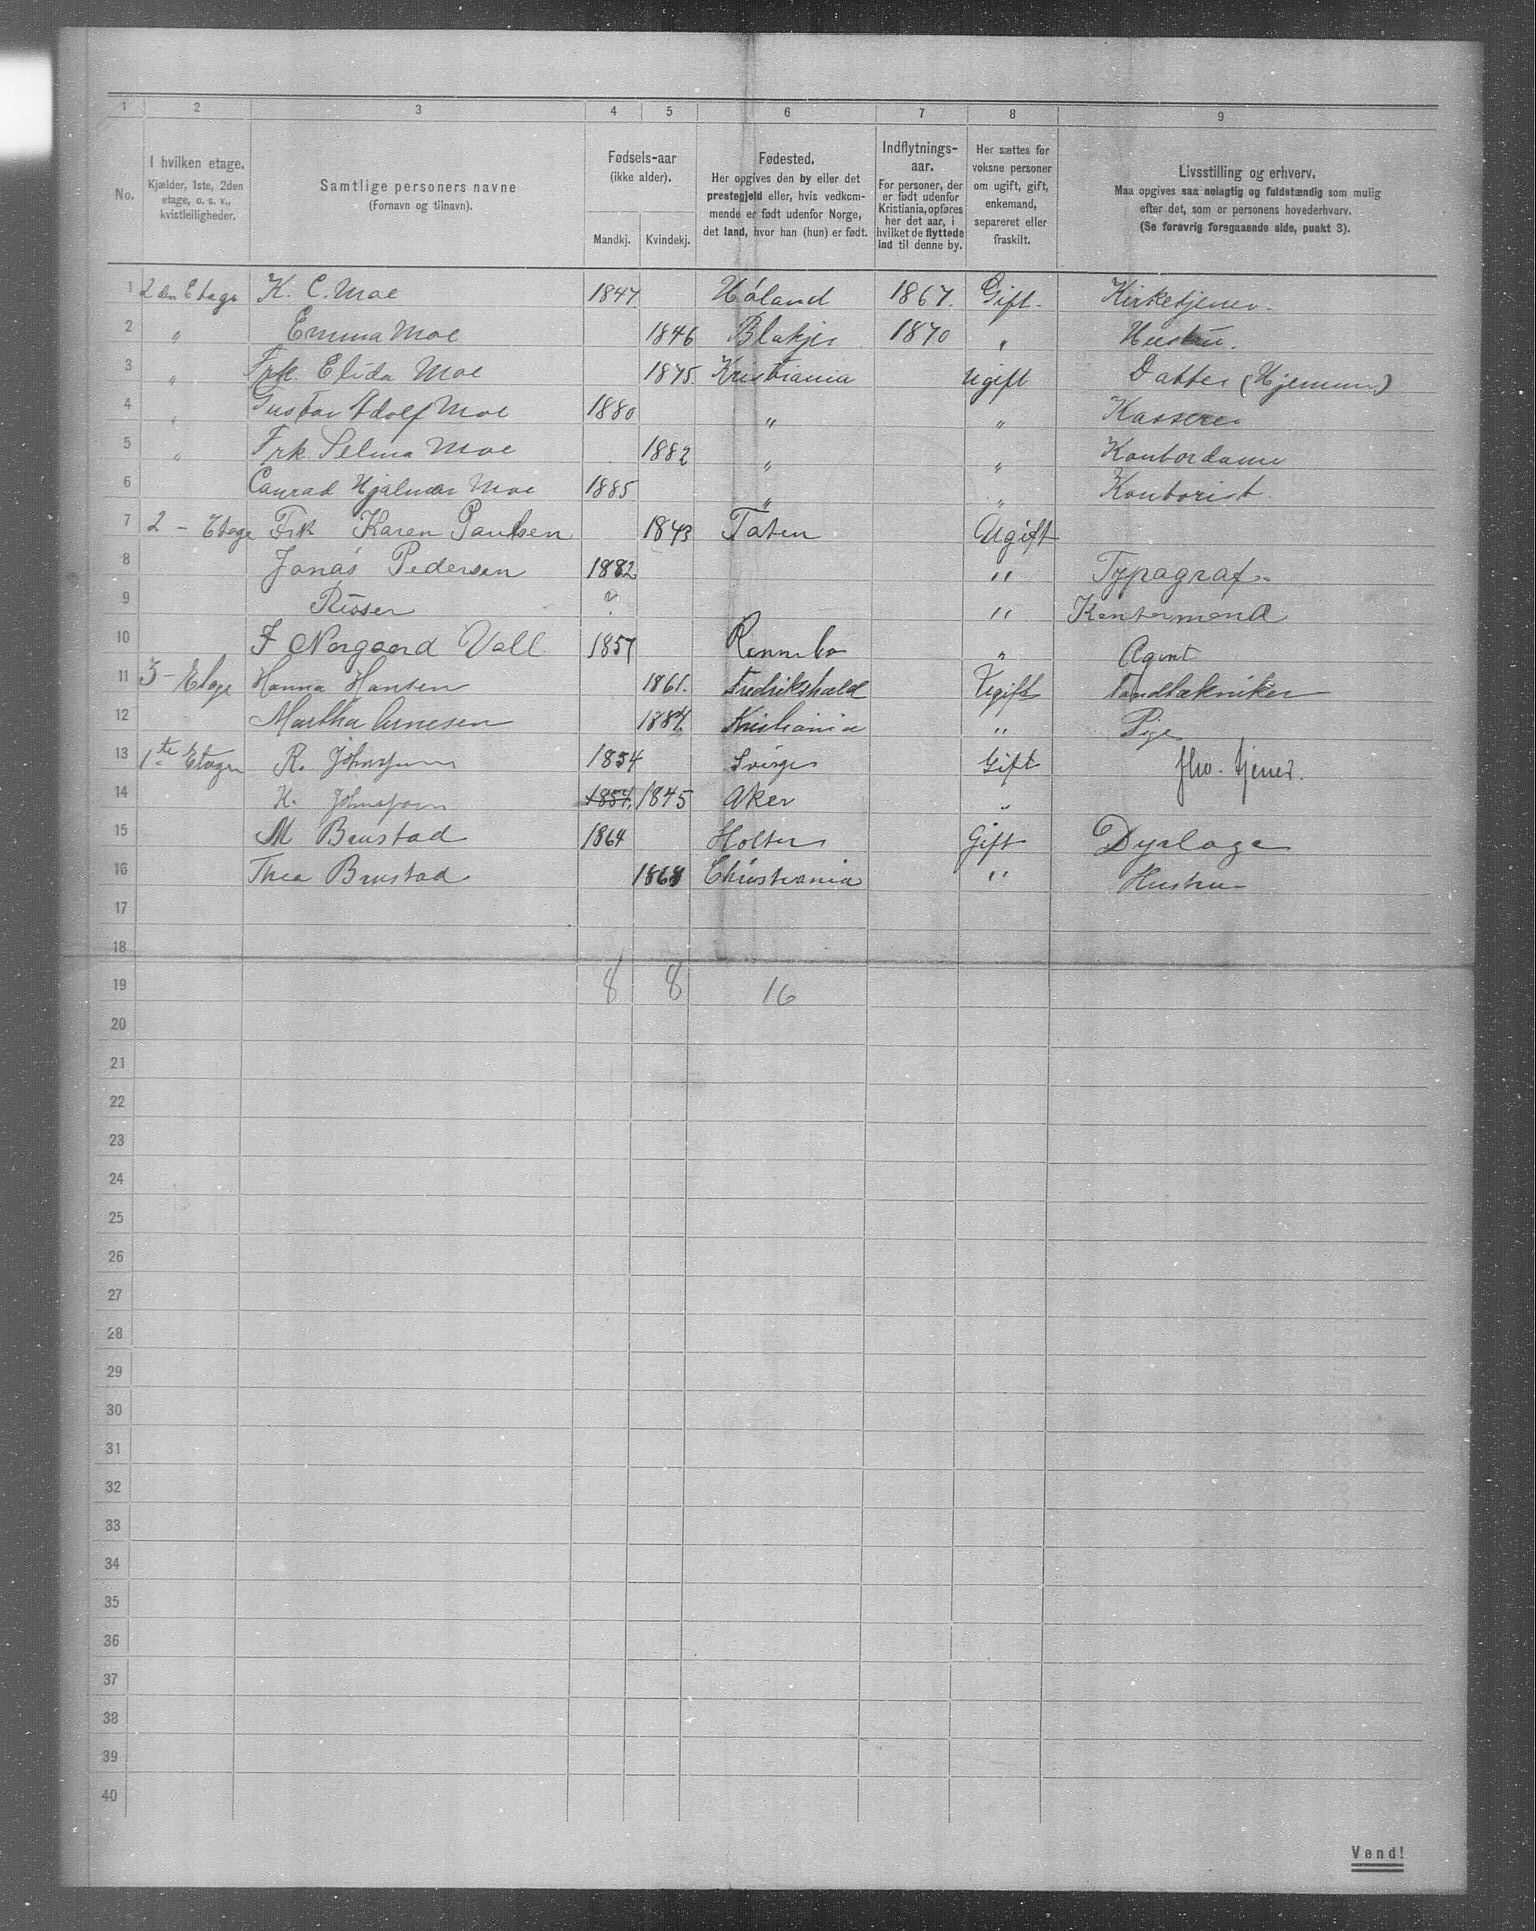 1 2 3 4 5 6 7 8 9
No.
I hvilken etage.
Kjælder, 1ste, 2den
etage, o. s. v.,
kvistleiligheder.
Samtlige personers navne
(Fornavn og tilnavn).
Fødsels-aar
(ikke alder).
Mandkj. Kvindekj.
Fødested.
Her opgives den by eller det
prestegjeld eller, hvis vedkom-
mende er født udenfor Norge,
det land, hvor han (hun) er født.
Indflytnings-
aar.
For personer, der
er født udenfor
Kristiania, opføres
her det aar, i
hvilket de flyttede
ind til denne by.
Her sættes for
voksne personer
om ugift, gift,
enkemand,
separeret eller
fraskilt.
Livsstilling og erhverv.
Maa opgives saa nøiagtig og fuldstændig som mulig
efter det, som er personens hovederhverv.
(Se forøvrig foregaaende side, punkt 3).
1 2den Etage K. C. Moe 1847 Høland 1867. Gift. Kirketjener.
2 " Emma Moe 1846 Blakjer 1870 " Hustru.
3 " Frk. Elida Moe 1875. Kristiania Ugift Datter (Hjemme)
4 " Gustav Adolf Moe 1880 " " Kasserer
5 " Frk. Selma Moe 1882 " " Kontordame
6 Conrad Hjalmar Moe 1885 " " Kontorist.
7 2 - Etage Frk Karen Paulsen 1843 Toten Ugift
8 Jonas Pedersen 1882 " Typograf.
9 Risser ? " Kontormand
10 F Norgaard Vall 1857 Rennebo " Agent
11 3 - Etage Hanna Hansen 1861. Fredrikshald Ugift Tandtekniker
12 Martha Arnesen 1884. Kristiania " Pige
13 1ste Etage R. 1854 Sverge Gift tjener.
14 K. 1857. 1845 Aker "
15 M Brustad 1864 Holter Gift Dyrlæge
16 Thea Brustad 1868 Christiania " Hustru
17
18
19 8 8 16
20
21
22
23
24
25
26
27
28
29
30
31
32
33
34
35
36
37
38
39
40
Vend!